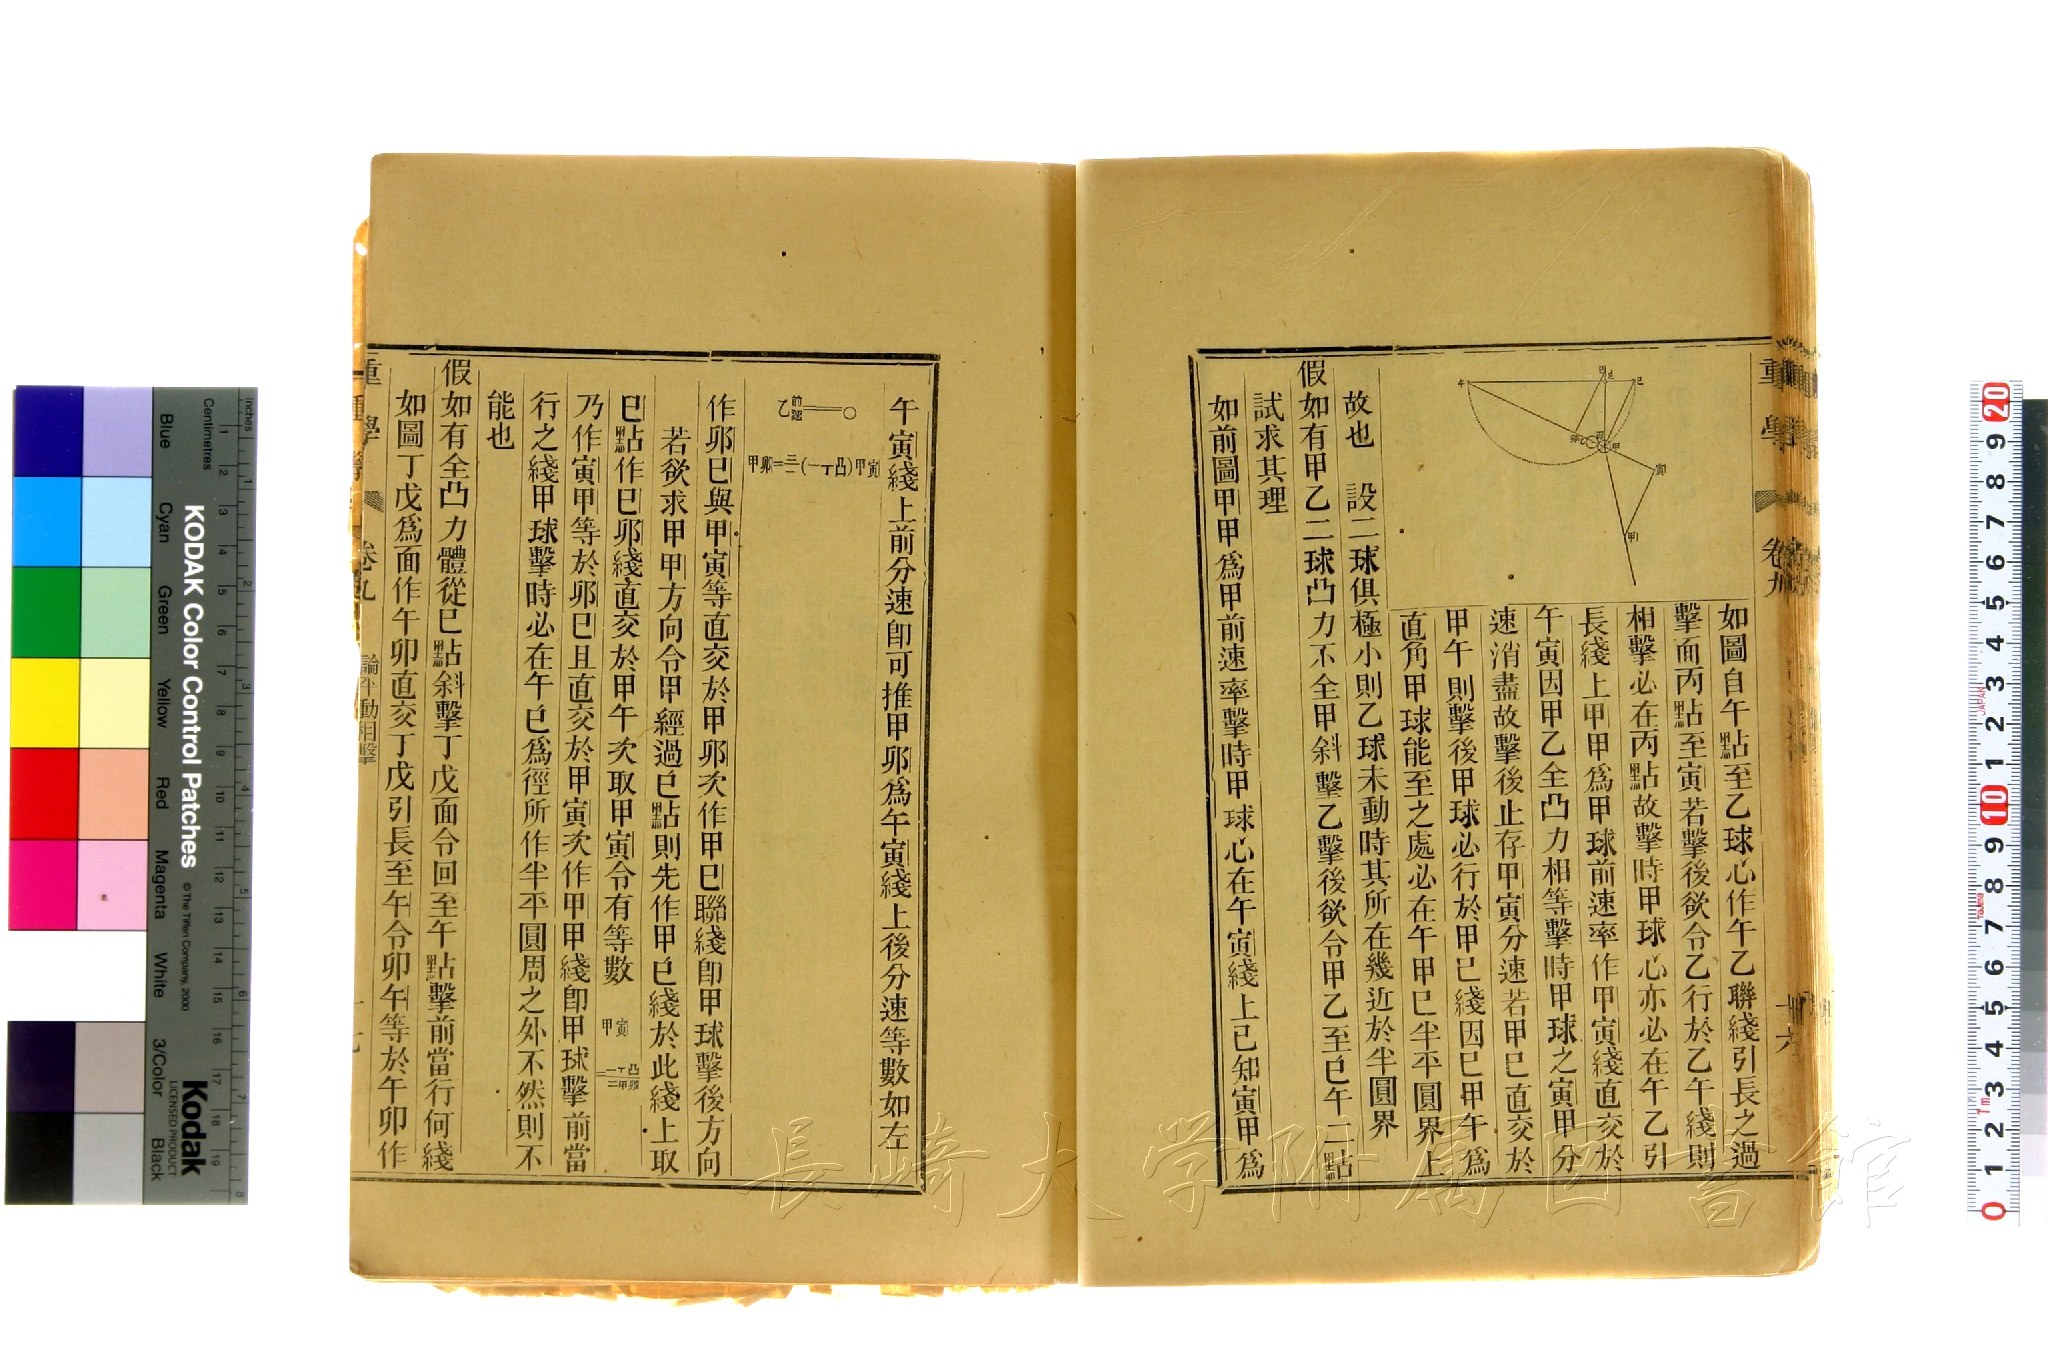 重學
卷九
如圖自午點至乙球心作午乙聯綫引長之過
擊面丙點至寅若擊後欲令乙行於乙午綫則
相擊必在丙點故擊時甲球心亦必在午乙引
長綫上甲甲爲甲球前速率作甲寅綫直交於
午寅因甲乙全凸力相等擊時甲球之寅甲分
速消盡故擊後止存甲寅分速若甲巳直交於
甲午則擊後甲球必行於甲巳綫因巳甲午爲
直角甲球能至之處必在午甲巳半平圓界上
故也 設二球俱極小則乙球未動時其所在幾近於半圓界
假如有甲乙二球凸力不全甲斜擊乙擊後欲令甲乙至巳午二點
試求其理
如前圖甲甲爲甲前速率擊時甲球心在午寅綫上已知寅甲爲
午寅綫上前分速卽可推甲卯爲午寅綫上後分速等數如左
作卯巳與甲寅等直交於甲卯次作甲巳聯綫卽甲球擊後方向
若欲求甲甲方向令甲經過巳點則先作甲巳綫於此綫上取
巳點作巳卯綫直交於甲午次取甲寅令有等數
乃作寅甲等於卯巳且直交於甲寅次作甲甲綫卽甲球擊前當
行之綫甲球擊時必在午巳爲徑所作半平圓周之外不然則不
能也
假如有全凸力體從巳點斜擊丁戊面令回至午點擊前當行何綫
如圖丁戊爲面作午卯直交丁戊引長至午令卯午等於午卯作
重學
卷九
論平動相擊
長崎大学附属図書館
KODAK Color Control Patches
© The Tiffen Company, 2000
Kodak
LICENSED PRODUCT
Centimetres
Inches
Blue
Cyan
Green
Yellow
Red
Magenta
White
3/Color
Black
JAPAN